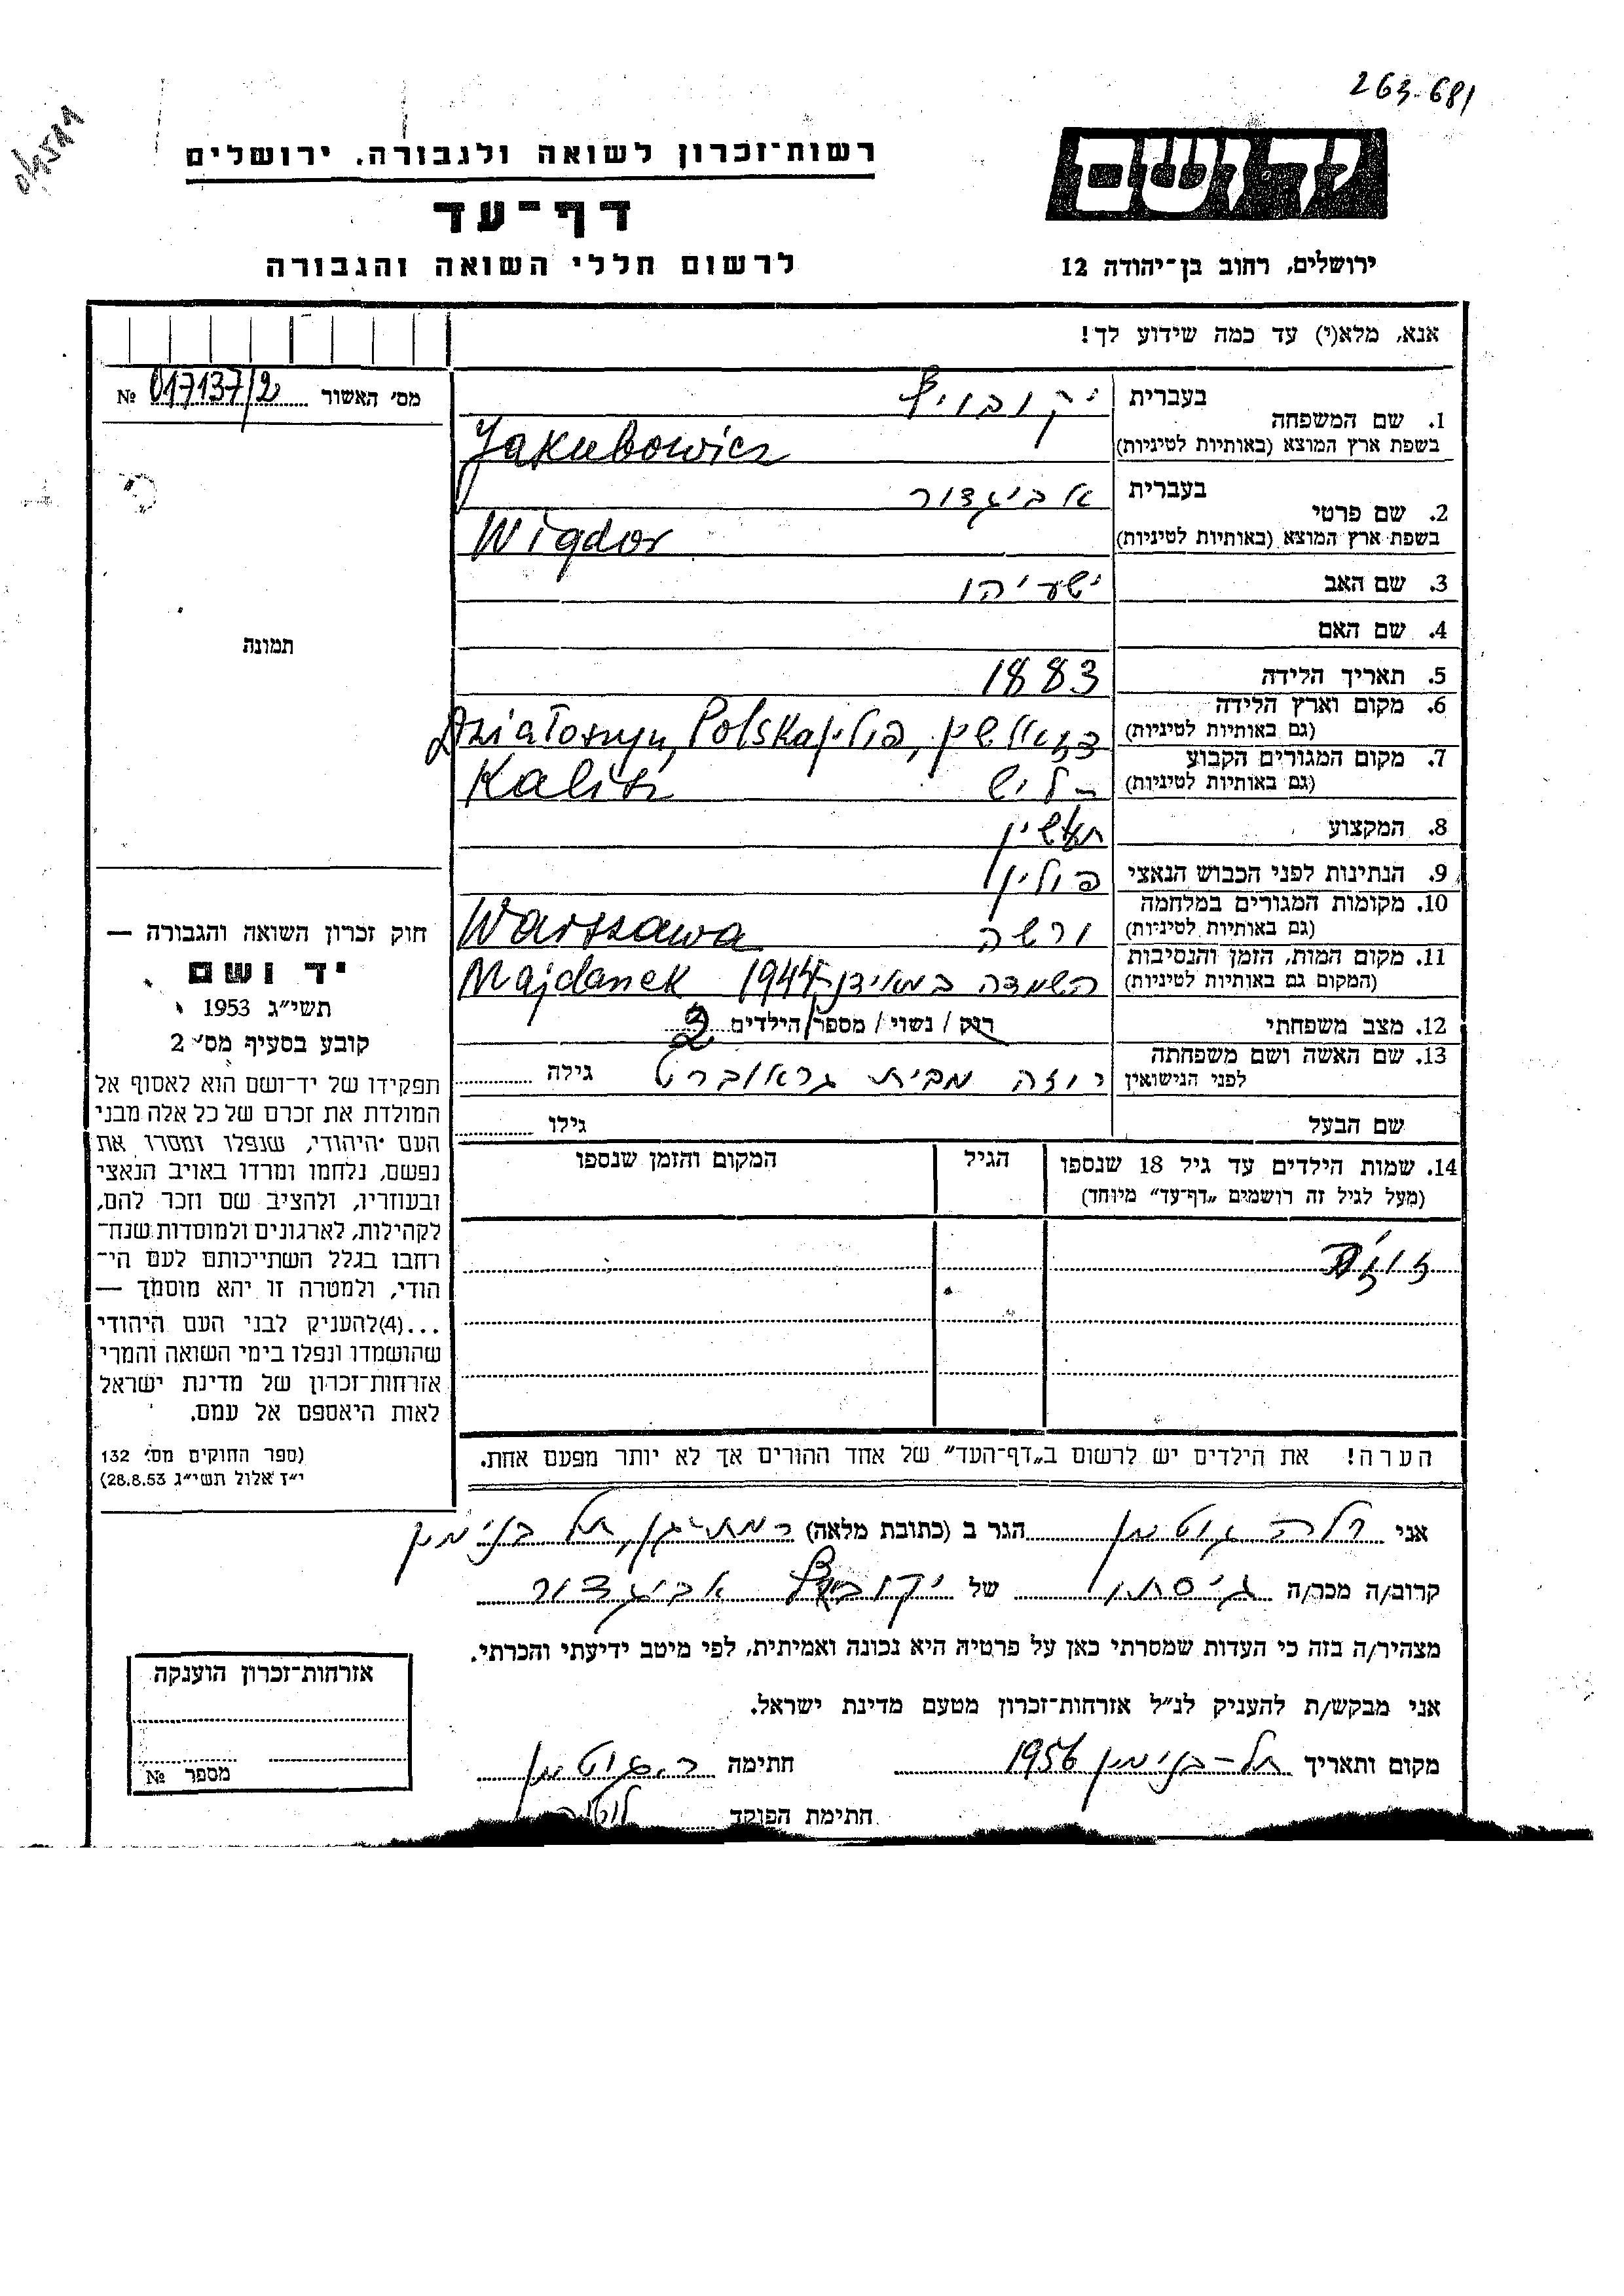 263-681
יד ושם
רשות-זכרון לשואה ולגבורה. ירושלים
דף-עד
לרשום חללי השואה והגבורה
ירושלים, רחוב בן-יהודה 12
אנא, מלא(י) עד כמה שידוע לך!
מס׳ האשור 017137/2 №
1. שם המשפחה בעברית יקובוויץ
בשפת ארץ המוצא (באותיות לטיניות) Jakubowicz
2. שם פרטי בעברית אביגדור
בשפת ארץ המוצא (באותיות לטיניות) Wigdor
3. שם האב ישעיהו
4. שם האם
5. תאריך הלידה 1883
6. מקום וארץ הלידה (גם באותיות לטיניות) פולין, Działoszyn, Polska
7. מקום המגורים הקבוע (גם באותיות לטיניות) קליש Kalisz
8. המקצוע תעשין
9. הנתינות לפני הכבוש הנאצי פולין
10. מקומות המגורים במלחמה (גם באותיות לטיניות) ורשה Warszawa
11. מקום המות, הזמן והנסיבות (המקום גם באותיות לטיניות) השמדה במאידנק 1944 Majdanek
12. מצב משפחתי רוק / נשוי / מספר הילדים 2
13. שם האשה ושם משפחתה לפני הנישואין רוזה מבית גראוברט גילה
שם הבעל גילו
14. שמות הילדים עד גיל 18 שנספו הגיל המקום והזמן שנספו
(מעל לגיל זה רושמים „דף-עד״ מיוחד)
הערה! את הילדים יש לרשום ב„דף-העד״ של אחד ההורים אך לא יותר מפעם אחת.
תמונה
חוק זכרון השואה והגבורה —
יד ושם
תשי״ג 1953
קובע בסעיף מס׳ 2
תפקידו של יד-ושם הוא לאסוף אל
המולדת את זכרם של כל אלה מבני
העם היהודי, שנפלו ומסרו את
נפשם, נלחמו ומרדו באויב הנאצי
ובעוזריו, ולהציב שם וזכר להם,
לקהילות, לארגונים ולמוסדות שנח-
רבו בגלל השתייכותם לעם הי-
הודי, ולמטרה זו יהא מוסמך —
...(4)להעניק לבני העם היהודי
שהושמדו ונפלו בימי השואה והמרי
אזרחות-זכרון של מדינת ישראל
לאות היאספם אל עמם.
(ספר החוקים מס׳ 132
י״ז אלול תשי״ג 28.8.53)
אני רלה גוטמן הגר ב (כתובת מלאה) רמת-גן, תל בנימין
קרוב/ה מכר/ה גיסתו של יקובוויץ אביגדור
מצהיר/ה בזה כי העדות שמסרתי כאן על פרטיה היא נכונה ואמיתית, לפי מיטב ידיעתי והכרתי.
אני מבקש/ת להעניק לנ״ל אזרחות-זכרון מטעם מדינת ישראל.
מקום ותאריך תל-בנימין 1956 חתימה ר. גוטמן
חתימת הפוקד
אזרחות-זכרון הוענקה
מספר №